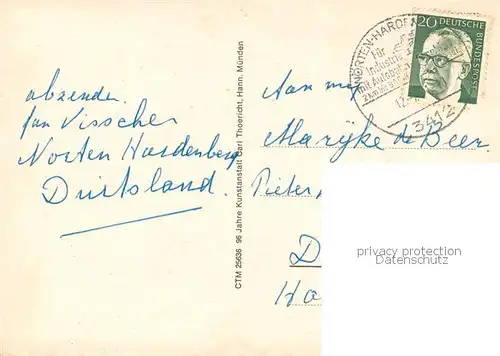 abzender
fan Visscher
Norten Hardenberg
Duitsland.
CTM 25636 96 Jahre Kunstanstalt Carl Thoericht, Hann. Münden
NÖRTEN-HARDENBERG
für
Industrie
3412
20 DEUTSCHE BUNDESPOST
Aan mej
Marijke de Beer
Pieter
D
Ho
privacy protection
Datenschutz